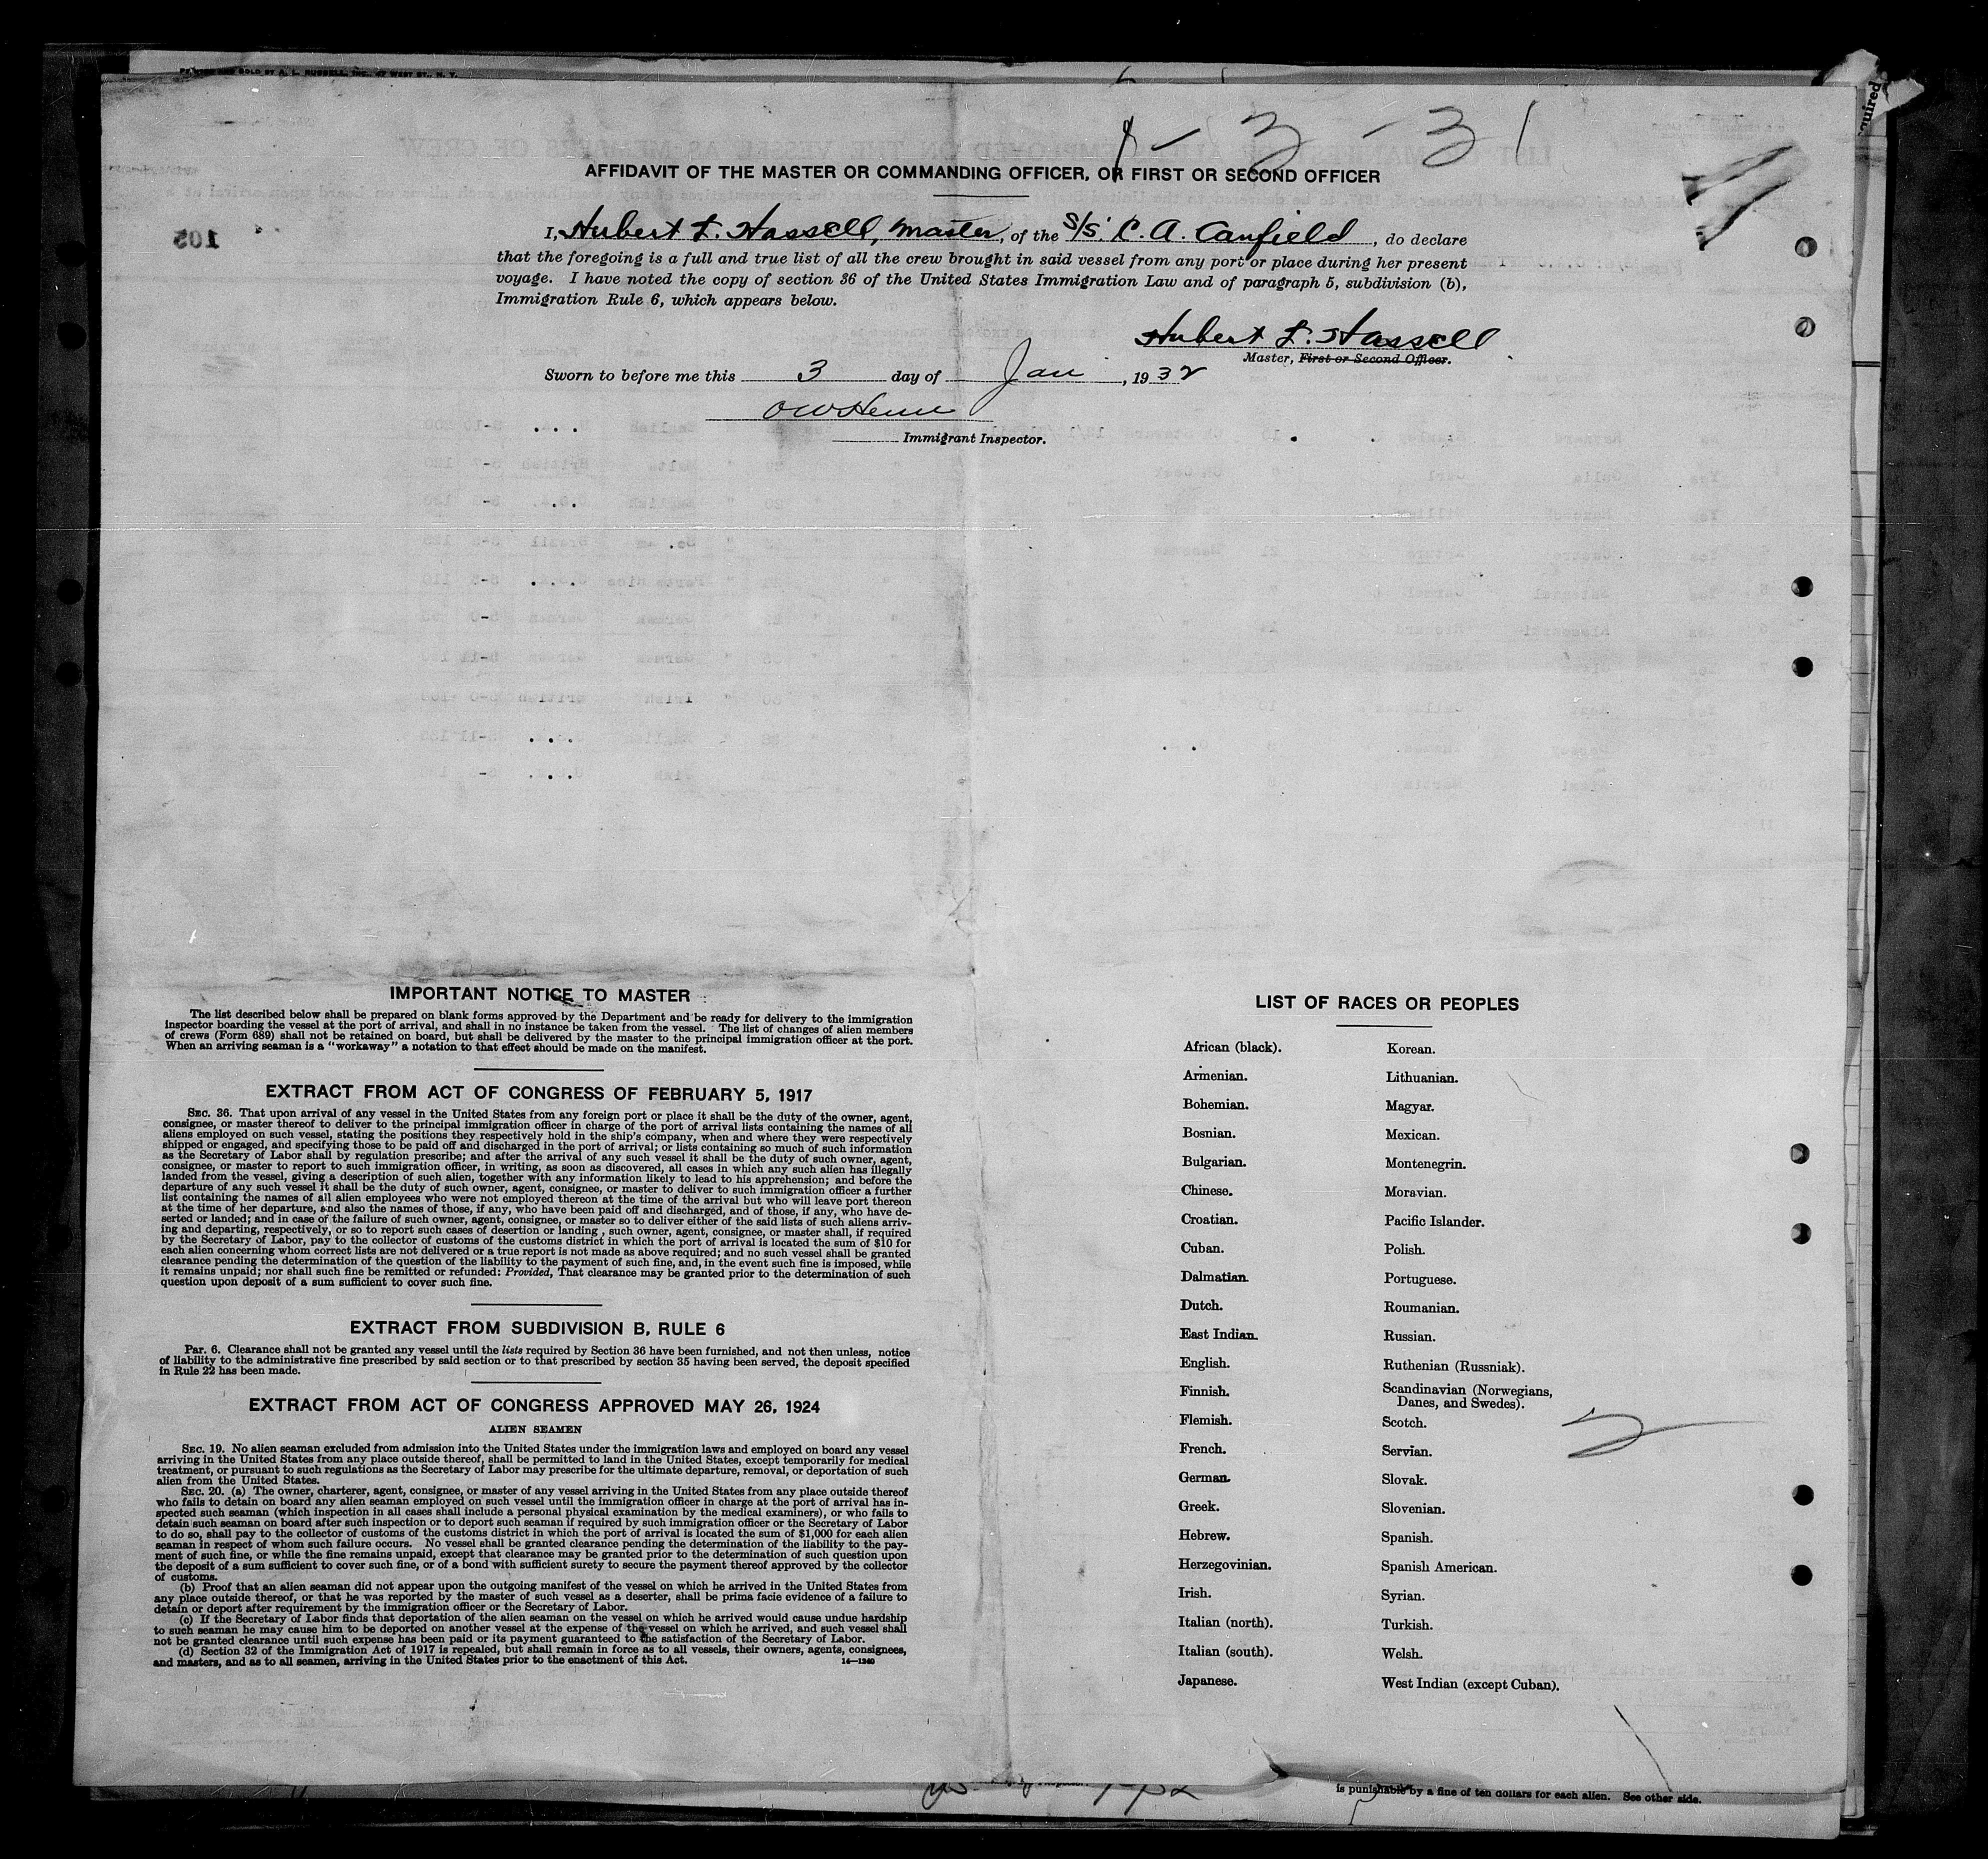 PRINTED AND SOLD BY A. L. RUSSELL, INC., 47 WEST ST., N. Y.
quired
1 - 3 - 31
AFFIDAVIT OF THE MASTER OR COMMANDING OFFICER, OR FIRST OR SECOND OFFICER
105
I, Hubert L. Hassell, Master, of the S/S. C. A. Canfield, do declare
that the foregoing is a full and true list of all the crew brought in said vessel from any port or place during her present
voyage. I have noted the copy of section 36 of the United States Immigration Law and of paragraph 5, subdivision (b),
Immigration Rule 6, which appears below.
Hubert L. Hassell
Master, First or Second Officer.
Sworn to before me this 3 day of Jan, 1932
Immigrant Inspector.
IMPORTANT NOTICE TO MASTER
The list described below shall be prepared on blank forms approved by the Department and be ready for delivery to the immigration
inspector boarding the vessel at the port of arrival, and shall in no instance be taken from the vessel. The list of changes of alien members
of crews (Form 689) shall not be retained on board, but shall be delivered by the master to the principal immigration officer at the port.
When an arriving seaman is a "workaway" a notation to that effect should be made on the manifest.
EXTRACT FROM ACT OF CONGRESS OF FEBRUARY 5, 1917
SEC. 36. That upon arrival of any vessel in the United States from any foreign port or place it shall be the duty of the owner, agent,
consignee, or master thereof to deliver to the principal immigration officer in charge of the port of arrival lists containing the names of all
aliens employed on such vessel, stating the positions they respectively hold in the ship's company, when and where they were respectively
shipped or engaged, and specifying those to be paid off and discharged in the port of arrival; or lists containing so much of such information
as the Secretary of Labor shall by regulation prescribe; and after the arrival of any such vessel it shall be the duty of such owner, agent,
consignee, or master to report to such immigration officer, in writing, as soon as discovered, all cases in which any such alien has illegally
landed from the vessel, giving a description of such alien, together with any information likely to lead to his apprehension; and before the
departure of any such vessel it shall be the duty of such owner, agent, consignee, or master to deliver to such immigration officer a further
list containing the names of all alien employees who were not employed thereon at the time of the arrival but who will leave port thereon
at the time of her departure, and also the names of those, if any, who have been paid off and discharged, and of those, if any, who have de-
serted or landed; and in case of the failure of such owner, agent, consignee, or master so to deliver either of the said lists of such aliens arriv-
ing and departing, respectively, or so to report such cases of desertion or landing, such owner, agent, consignee, or master shall, if required
by the Secretary of Labor, pay to the collector of customs of the customs district in which the port of arrival is located the sum of $10 for
each alien concerning whom correct lists are not delivered or a true report is not made as above required; and no such vessel shall be granted
clearance pending the determination of the question of the liability to the payment of such fine, and, in the event such fine is imposed, while
it remains unpaid; nor shall such fine be remitted or refunded: Provided, That clearance may be granted prior to the determination of such
question upon deposit of a sum sufficient to cover such fine.
EXTRACT FROM SUBDIVISION B, RULE 6
Par. 6. Clearance shall not be granted any vessel until the lists required by Section 36 have been furnished, and not then unless, notice
of liability to the administrative fine prescribed by said section or to that prescribed by section 35 having been served, the deposit specified
in Rule 22 has been made.
EXTRACT FROM ACT OF CONGRESS APPROVED MAY 26, 1924
ALIEN SEAMEN
SEC. 19. No alien seaman excluded from admission into the United States under the immigration laws and employed on board any vessel
arriving in the United States from any place outside thereof, shall be permitted to land in the United States, except temporarily for medical
treatment, or pursuant to such regulations as the Secretary of Labor may prescribe for the ultimate departure, removal, or deportation of such
alien from the United States.
SEC. 20. (a) The owner, charterer, agent, consignee, or master of any vessel arriving in the United States from any place outside thereof
who fails to detain on board any alien seaman employed on such vessel until the immigration officer in charge at the port of arrival has in-
spected such seaman (which inspection in all cases shall include a personal physical examination by the medical examiners), or who fails to
detain such seaman on board after such inspection or to deport such seaman if required by such immigration officer or the Secretary of Labor
to do so, shall pay to the collector of customs of the customs district in which the port of arrival is located the sum of $1,000 for each alien
seaman in respect of whom such failure occurs. No vessel shall be granted clearance pending the determination of the liability to the pay-
ment of such fine, or while the fine remains unpaid, except that clearance may be granted prior to the determination of such question upon
the deposit of a sum sufficient to cover such fine, or of a bond with sufficient surety to secure the payment thereof approved by the collector
of customs.
(b) Proof that an alien seaman did not appear upon the outgoing manifest of the vessel on which he arrived in the United States from
any place outside thereof, or that he was reported by the master of such vessel as a deserter, shall be prima facie evidence of a failure to
detain or deport after requirement by the immigration officer or the Secretary of Labor.
(c) If the Secretary of Labor finds that deportation of the alien seaman on the vessel on which he arrived would cause undue hardship
to such seaman he may cause him to be deported on another vessel at the expense of the vessel on which he arrived, and such vessel shall
not be granted clearance until such expense has been paid or its payment guaranteed to the satisfaction of the Secretary of Labor.
(d) Section 32 of the Immigration Act of 1917 is repealed, but shall remain in force as to all vessels, their owners, agents, consignees,
and masters, and as to all seamen, arriving in the United States prior to the enactment of this Act.
14—1240
LIST OF RACES OR PEOPLES
African (black).
Armenian.
Bohemian.
Bosnian.
Bulgarian.
Chinese.
Croatian.
Cuban.
Dalmatian.
Dutch.
East Indian.
English.
Finnish.
Flemish.
French.
German.
Greek.
Hebrew.
Herzegovinian.
Irish.
Italian (north).
Italian (south).
Japanese.
Korean.
Lithuanian.
Magyar.
Mexican.
Montenegrin.
Moravian.
Pacific Islander.
Polish.
Portuguese.
Roumanian.
Russian.
Ruthenian (Russniak).
Scandinavian (Norwegians,
Danes, and Swedes).
Scotch.
Servian.
Slovak.
Slovenian.
Spanish.
Spanish American.
Syrian.
Turkish.
Welsh.
West Indian (except Cuban).
2
is punishable by a fine of ten dollars for each alien. See other side.